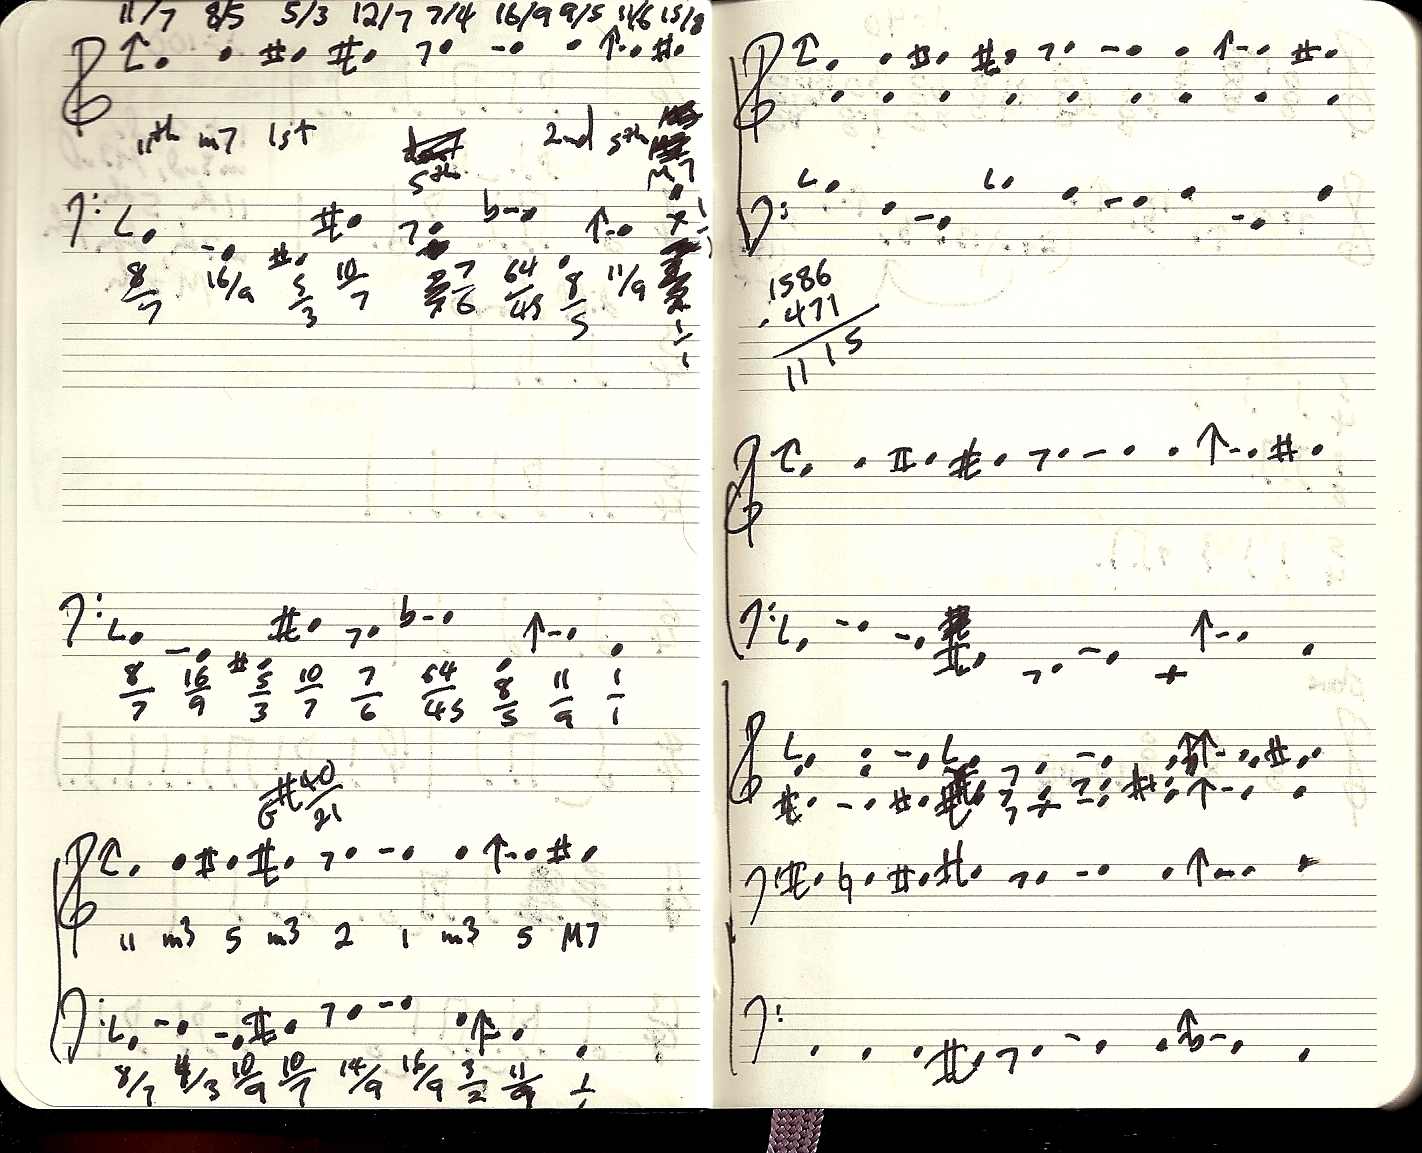 11/7 8/5 5/3 12/7 7/4 16/9 9/5 11/6 15/8
11th m7 1st 5th 2nd 5th M7
8/7 16/9 5/3 10/7 7/6 64/45 8/5 11/9 1/1
8/7 16/9 5/3 10/7 7/6 64/45 8/5 11/9 1/1
G# 40/21
11 m3 5 m3 2 1 m3 5 M7
8/7 4/3 10/9 10/7 14/9 16/9 3/2 11/9 1/1
1586
- 471
1115